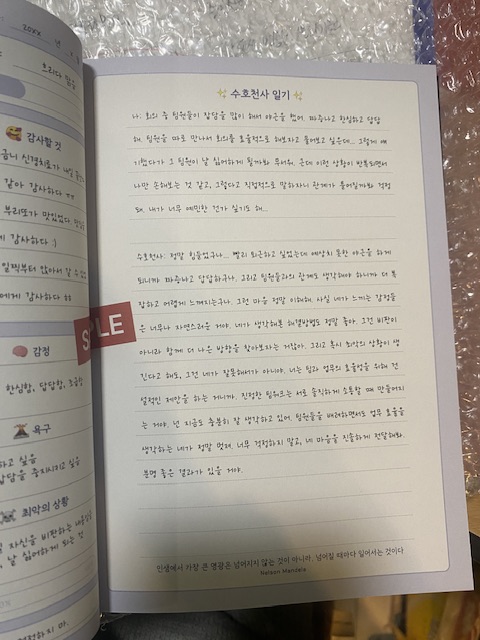 20XX 년
흐리다 맑음
🥰 감사할 것
신경치료가 내일
같아 감사하다 ㅠㅠ
부리또가 맛있었다.
게 감사하다 :)
일찍부터 앉아서 갈 수
에게 감사하다 ㅎㅎ
🧠 감정
한심함, 답답함, 초조함
🌋 욕구
하고 싶음
잡담을 중지시키고 싶음
☠️ 최악의 상황
자신을 비판하는 내용
날 싫어하게 되는 것
하지 마.
SAMPLE
✨ 수호천사 일기 ✨
나: 회의 중 팀원들이 잡담을 많이 해서 야근을 했어. 짜증나고 한심하고 답답
해. 팀원을 따로 만나서 회의를 효율적으로 해보자고 물어보고 싶은데... 그렇게 얘
기했다가 그 팀원이 날 싫어하게 될까봐 무서워. 근데 이런 상황이 반복되면서
나만 손해보는 것 같고, 그렇다고 직접적으로 말하자니 관계가 틀어질까봐 걱정
돼. 내가 너무 예민한 건가 싶기도 해...
수호천사: 정말 힘들었구나... 빨리 퇴근하고 싶었는데 예상치 못한 야근을 하게
되니까 짜증나고 답답하구나. 그리고 팀원들과의 관계도 생각해야 하니까 더 복
잡하고 어렵게 느껴지는구나. 그런 마음 정말 이해해. 사실 네가 느끼는 감정들
은 너무나 자연스러운 거야. 네가 생각해본 해결방법도 정말 좋아. 그건 비판이
아니라 함께 더 나은 방향을 찾아보자는 거잖아. 그리고 혹시 최악의 상황이 생
긴다고 해도, 그건 네가 잘못해서가 아니야. 너는 팀과 업무의 효율성을 위해 건
설적인 제안을 하는 거니까. 진정한 팀워크는 서로 솔직하게 소통할 때 만들어지
는 거야. 넌 지금도 충분히 잘 생각하고 있어. 팀원들을 배려하면서도 업무 효율을
생각하는 네가 정말 멋져. 너무 걱정하지 말고, 네 마음을 진솔하게 전달해봐.
분명 좋은 결과가 있을 거야.
인생에서 가장 큰 영광은 넘어지지 않는 것이 아니라, 넘어질 때마다 일어서는 것이다
Nelson Mandela